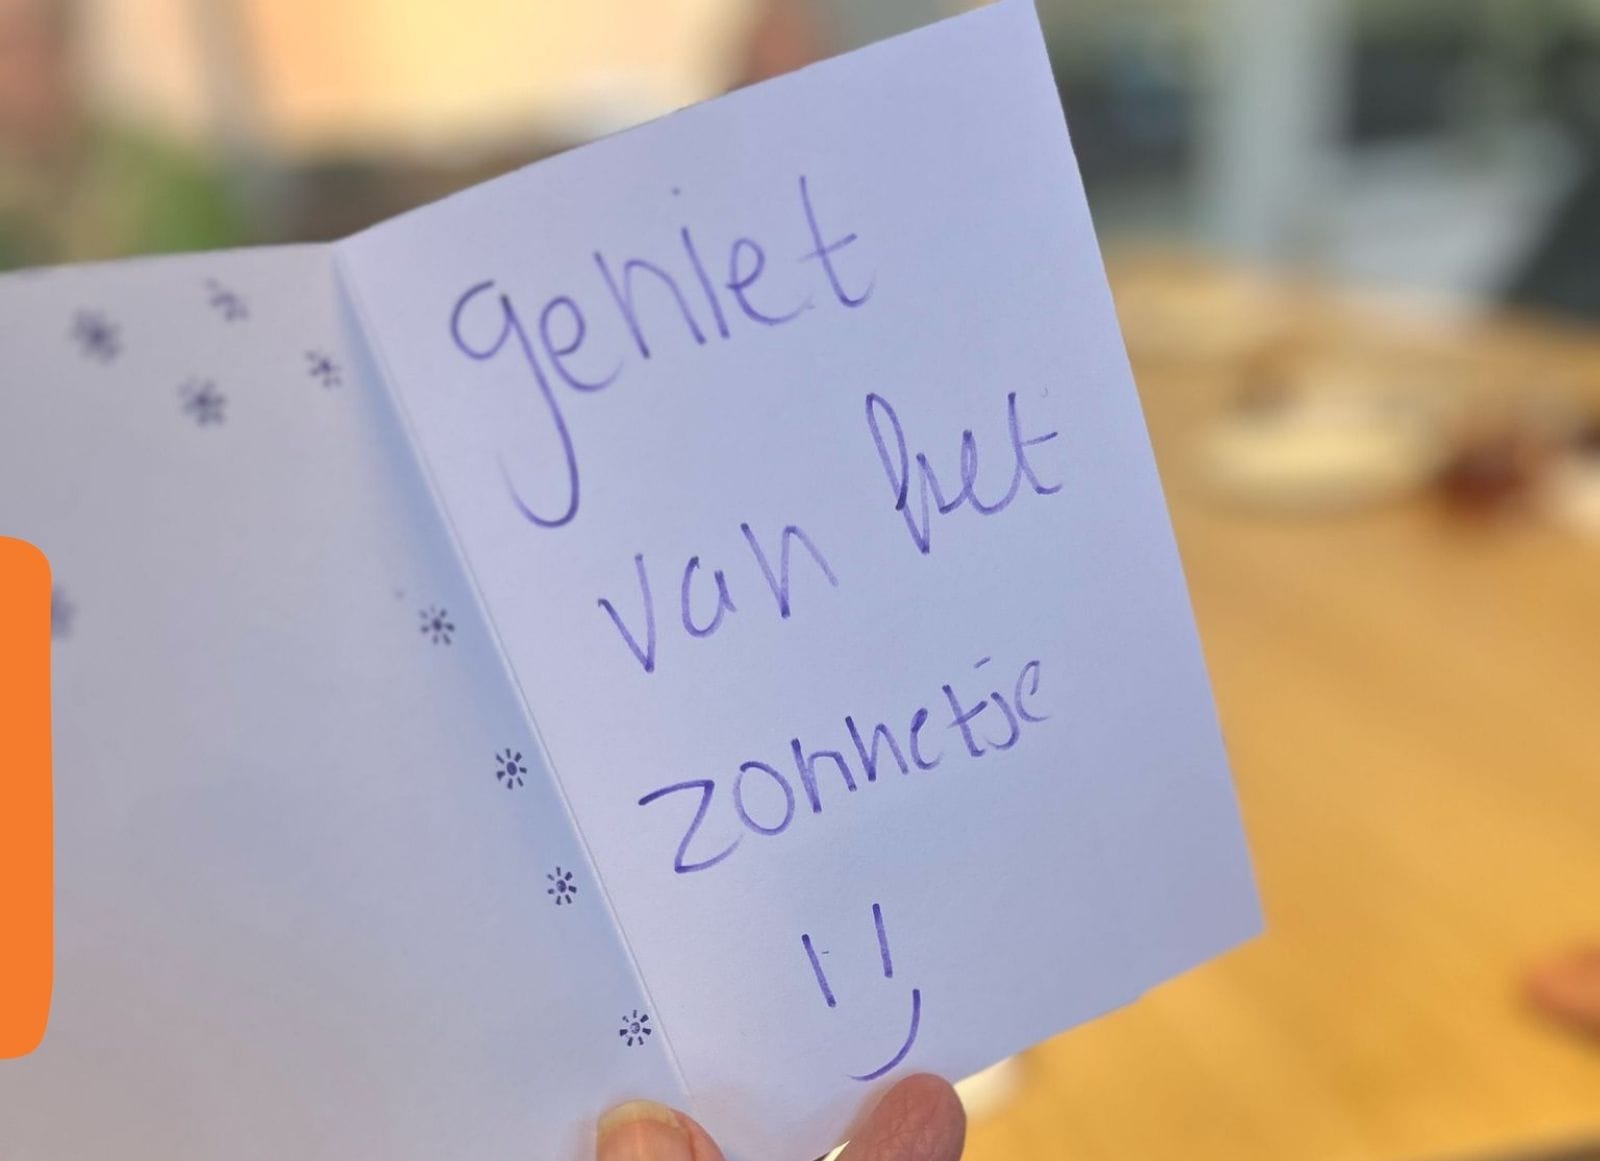 geniet
van het
zonnetje